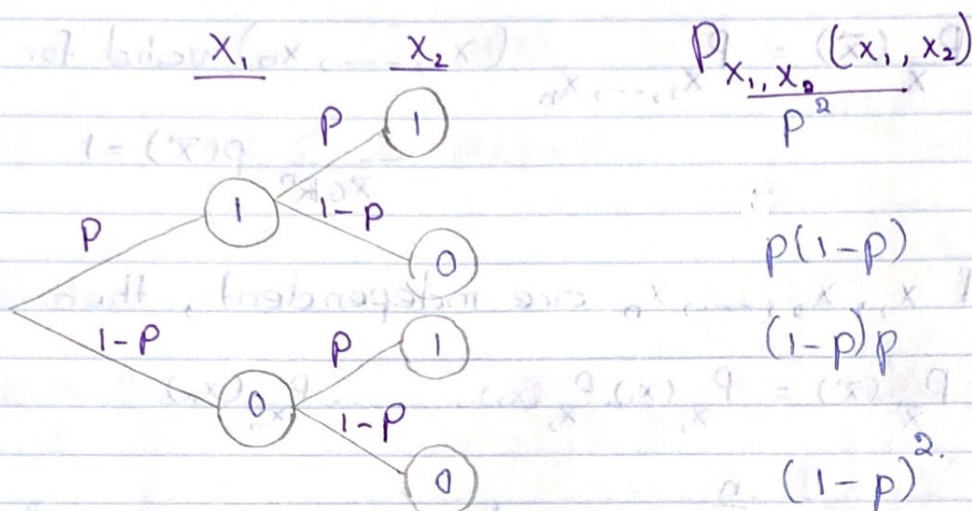 X₁ X₂ P_{X₁, X₂}(x₁, x₂)
p 1 p²
1 1-p
p 0 p(1-p)
1-p p 1 (1-p)p
0 1-p
0 (1-p)².